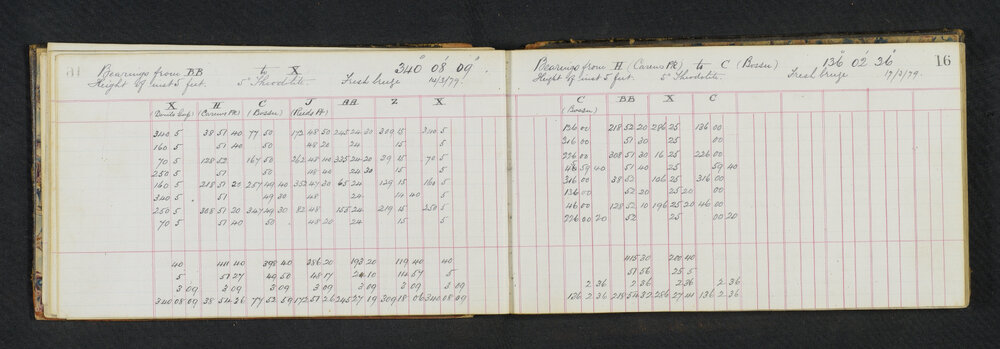 Bearings from BB to X 340° 08' 09".
Height of inst 5 feet. 5" Theodolite. Fresh breeze 14/3/79.
X H C J BB Z X
(Devils Gap) (Cairns Pt) (Bossu) (Reids Pt)
340 5 38 51 40 77 50 172 48 50 245 24 30 309 15 340 5
160 5 51 40 50 48 20 24 15 5
70 5 128 52 167 50 262 48 40 335 24 20 29 15 70 5
250 5 51 50 48 40 24 30 15 5
160 5 218 51 20 257 49 40 352 47 30 65 24 129 15 160 5
340 5 51 49 30 48 24 14 40 5
250 5 308 51 20 347 49 30 82 48 155 24 219 15 250 5
70 5 51 40 50 48 20 24 15 5
40 411 40 398 40 386 20 193 20 119 40 40
5 51 27 49 50 48 17 24 10 14 57 5
3 09 3 09 3 09 3 09 3 09 3 09 3 09
340 08 09 38 54 36 77 52 59 172 51 26 245 27 19 309 18 06 340 08 09
16
Bearings from H (Cairns Pt) to C (Bossu) 136° 02' 36"
Height of inst 5 feet. 5" Theodolite. Fresh breeze 17/3/79.
C BB X C
(Bossu)
136 00 218 52 20 286 25 136 00
316 00 51 30 25 00
226 00 308 51 30 16 25 226 00
59 40 51 40 25 59 40
316 00 38 52 106 25 316 00
136 00 52 20 25 20 00
46 00 128 52 10 196 25 20 46 00
226 00 20 52 25 00 20
415 30 200 40
51 56 25 5
2 36 2 36 2 36 2 36
136 2 36 218 54 32 286 27 41 136 2 36